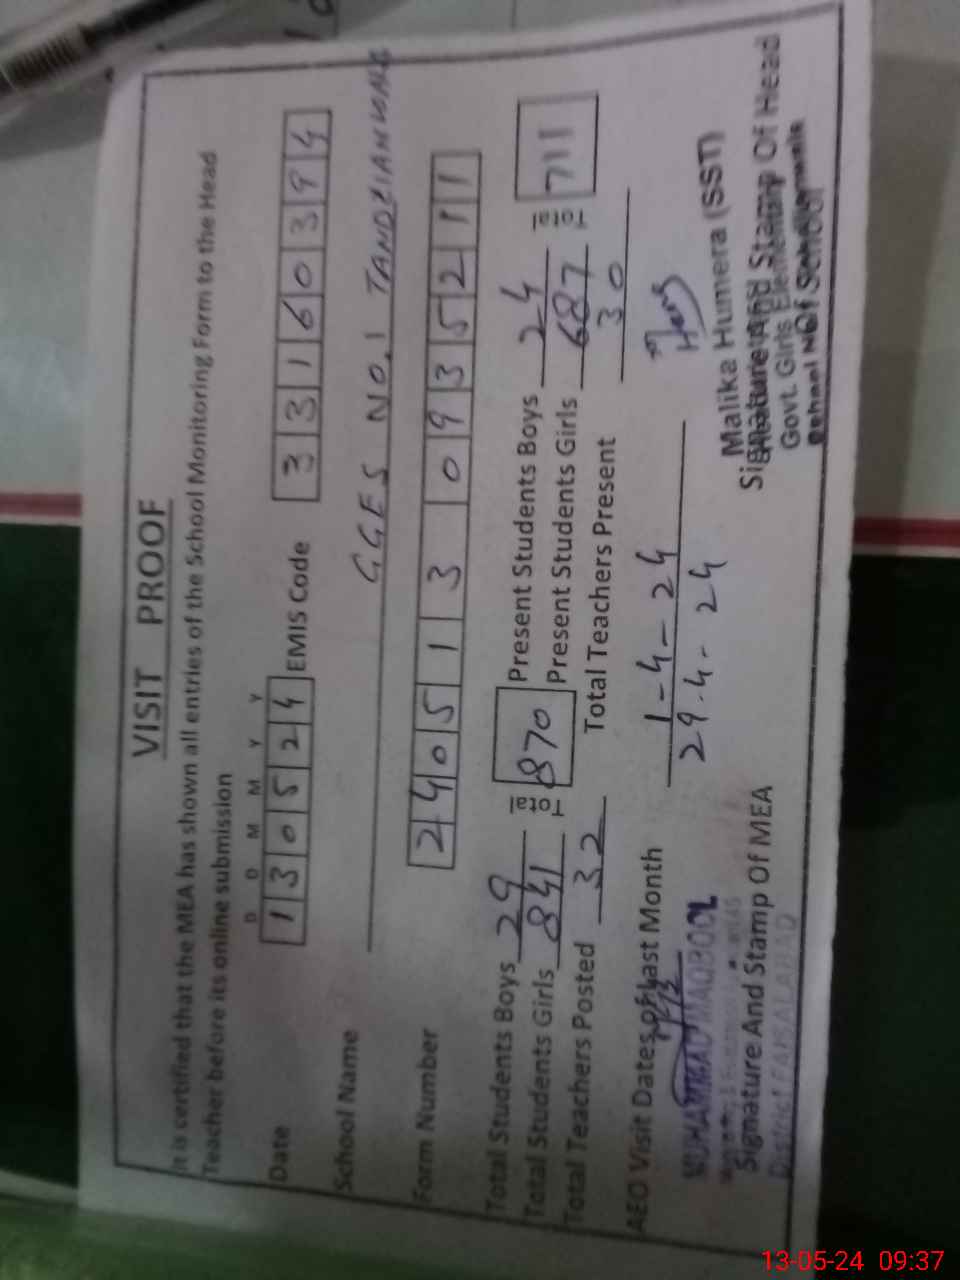 VISIT PROOF
It is certified that the MEA has shown all entries of the School Monitoring Form to the Head
Teacher before its online submission
D D M M Y Y
Date 130524 EMIS Code 33160394
School Name GGES NO.1 TANDLIANWALA
Form Number 2405 13 0935211
Total Students Boys 29 Total 870 Present Students Boys 24 Total 711
Total Students Girls 841 Present Students Girls 687
Total Teachers Posted 32 Total Teachers Present 30
AEO Visit Dates of Last Month 1-4-24
29-4-24
MUHAMMAD MAQBOOL
Signature And Stamp Of MEA
District FAISALABAD
Malika Humera (SST)
Signature And Stamp Of Head
Govt. Girls Elementary
School No
Of School
13-05-24 09:37